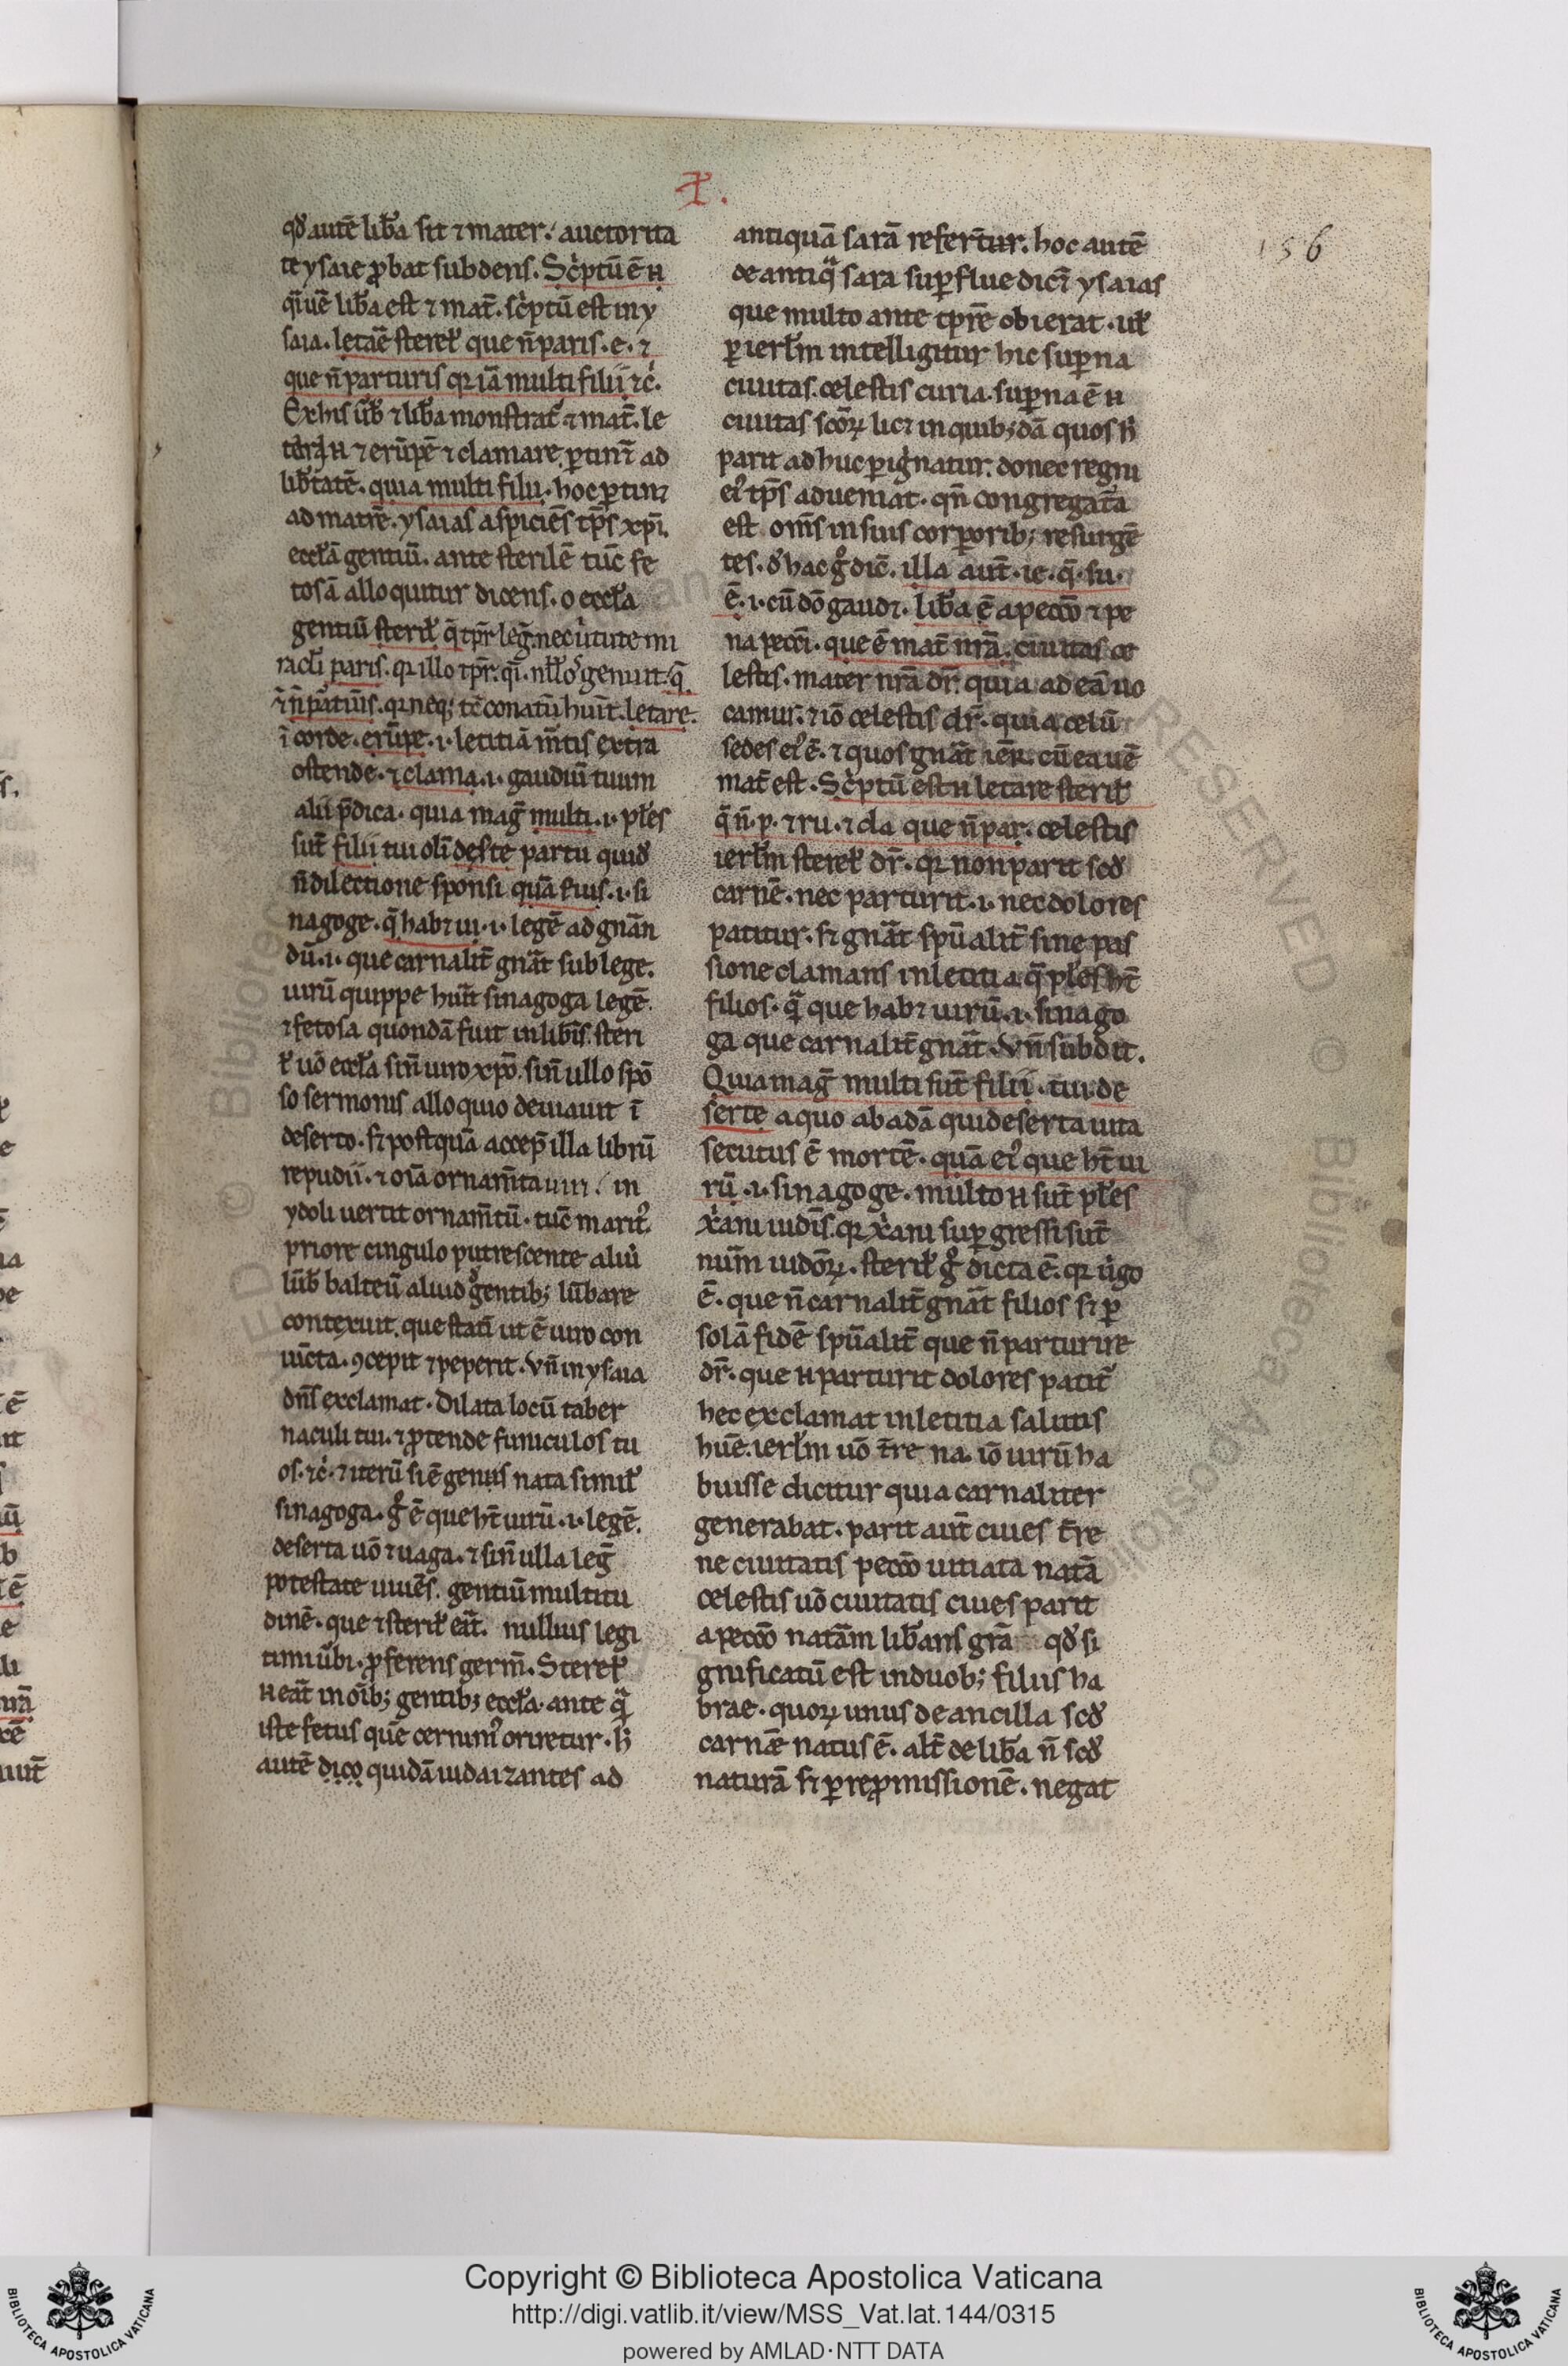 qđ autē lib̄a sit ⁊ mater. auctorita
te ysaie ꝓbat subdens. Sc̓ptū ē .n.
q̄ uē lib̄a est ⁊ mat̄. sc̓ptū est in y
saia. letaē sterel̓ que n̄ paris. e. ⁊
que n̄ parturis qr iā multi filii ⁊c̓.
Ex his ūb̓ ⁊ lib̄a monstrat̓ ⁊ mat̄. le
.n. ⁊ erūpē ⁊ clamare ꝑtin̄t ad
lib̄tatē. quia multi filii. hoc ꝑtin⁊
ad matrē. ysaias aspiciēs tp̄s xp̄i.
eccl̄ā gentiū. ante sterilē tūc fe
tosā alloquitur dicens. o eccl̄a
gentiū steril̓ q̄ tp̄r leḡ. nec ùtute mi
racl̓i paris. qr illo tp̄r. genuit. q̄
⁊ n̄ pat̄uis. qr neq; tc̄ conatū huīt. letare.
ī corde. erūpe .i. letitiā m̄tis extra
ostende. ⁊ clama .i. gaudiū tuum
alii p̄dica. quia maḡ multi .i. pl̓es
sūt filii tui oli deste partu quid̓
n̄ dilectione sponsi quā ei̓us .i. si
nagoge. q̄ hab⁊ ui .i. legē ad gnān
dū .i. que carnalit̄ gnāt sub lege.
uirū quippe hūit sinagoga legē.
⁊ fetosa quondā fuit in lib̄is. steri
l̓ uō eccl̄a sin̄ uiro xp̄o. sin̄ ullo spō
so sermonis alloquio deuiauit ī
deserto. s⁊ postquā accep̄ illa librū
repudii. ⁊ oīa ornam̄ta uiri in
ydoli uertit ornam̄tū. tūc marit⁹
priore cingulo putrescente aliù
lūb̓ balteū aliud g̊ gentib; lūbare
contexuit. que stati ut ē uiro con
iūcta. ꝯcepit ⁊ peperit. Vn̄ in ysaia
dn̄s exclamat. Dilata locū taber
naculi tui. ⁊ ꝓtende funiculos tu
os. ⁊c̓. ⁊ iterū si ē genus nata simil̓
sinagoga. g̊ ē que ht̄ uirū .i. legē.
deserta uō ⁊ uaga. ⁊ sin̄ ulla leḡ
potestate uiuēs. gentiū multitu
dinē. que ⁊ steril̓ eāt. nullius legi
timi ūbi. ꝓferens germ̄. Sterel̓
.n. eāt in oīb; gentib; eccl̄a. ante q̄
iste fetus quē cernim⁹ oriretur. h̓
autē dico quidā iudaizantes ad
antiquā sarā refer̄tur. hoc autē
de antiq̄ sara suꝑflue dic̄⁊ ysaias
que multo ante tp̄rē obierat. ul̓
ꝑ ierl̄m intelligitur hic suꝑna
ciuitas. celestis curia. suꝑna ē .n.
ciuitas scōꝝ lic⁊ in quib;dā quos h̓
parit adhuc ꝑig̓natur. donec regni
ei⁹ tp̄s adueniat. qn̄ congregata
est om̄s in suis corꝑorib; resurgē
tes. d̓ hac g̊ dic̄. illa aut̄. ie. q̄. su.
ē. .i. cū dō gaud⁊. lib̄a ē a peccō ⁊ pe
na pecci. que ē mat̄ nr̄a. ciuitas ce
lestis. mater nr̄a dr̄. quia ad eā uo
camur. ⁊ iō celestis dr̄. quia celū
sedes ei⁹ ē. ⁊ quos gnāt cū ea uē
mat̄ est. Sc̓ptū est .n. letare steril̓
q̄ n̄. p. ⁊ ru. ⁊ cla que n̄ par. celestis
ierl̄m sterel̓ dr̄. qr non parit scd̓
carnē. nec parturit .i. nec dolores
patitur. s⁊ gnāt spūalit̄ sine pas
sione clamans in letitia q̄ pl̓es ht̄
filios. q̄ que hab⁊ uirū .i. sinago
ga que carnalit̄ gnāt. Vn̄ subdit.
Quia maḡ multi sūt filii. tui. de
serte a quo ab adā qui deserta uita
secutus ē mortē. quā ei⁹ que ht̄ ui
rū .i. sinagoge. multo .n. sūt pl̓es
x̓ani iudīs. qr x̓ani suꝑgressi sūt
num̄ iudōꝝ. steril̓ g̊ dicta ē. qr ùgo
ē. que n̄ carnalit̄ gnāt filios s⁊ ꝑ
solā fidē spūalit̄ que n̄ parturire
dr̄. que .n. parturit dolores patit̄
hec exclamat in letitia salutis
huē. ierl̄m uō t̄re na. iō uirū ha
buisse dicitur quia carnaliter
generabat. parit aut̄ ciues t̄re
ne ciuitatis peccō uitiata natā
celestis uō ciuitatis ciues parit
a peccō natām lib̄ans grā qđ si
gnificatū est in duob; filiis ha
brae. quoꝝ unus de ancilla scd̓
carnē natus ē. alt̄ de lib̄a n̄ scd̓
naturā s⁊ ꝑ reꝓmissionē. negat
156
Copyright © Biblioteca Apostolica Vaticana
http://digi.vatlib.it/view/MSS_Vat.lat.144/0315
powered by AMLAD·NTT DATA
BIBLIOTECA APOSTOLICA VATICANA
BIBLIOTECA APOSTOLICA VATICANA